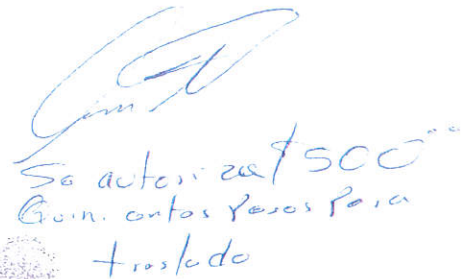 Se autoriza $500°°
Quinientos Pesos Para
traslado